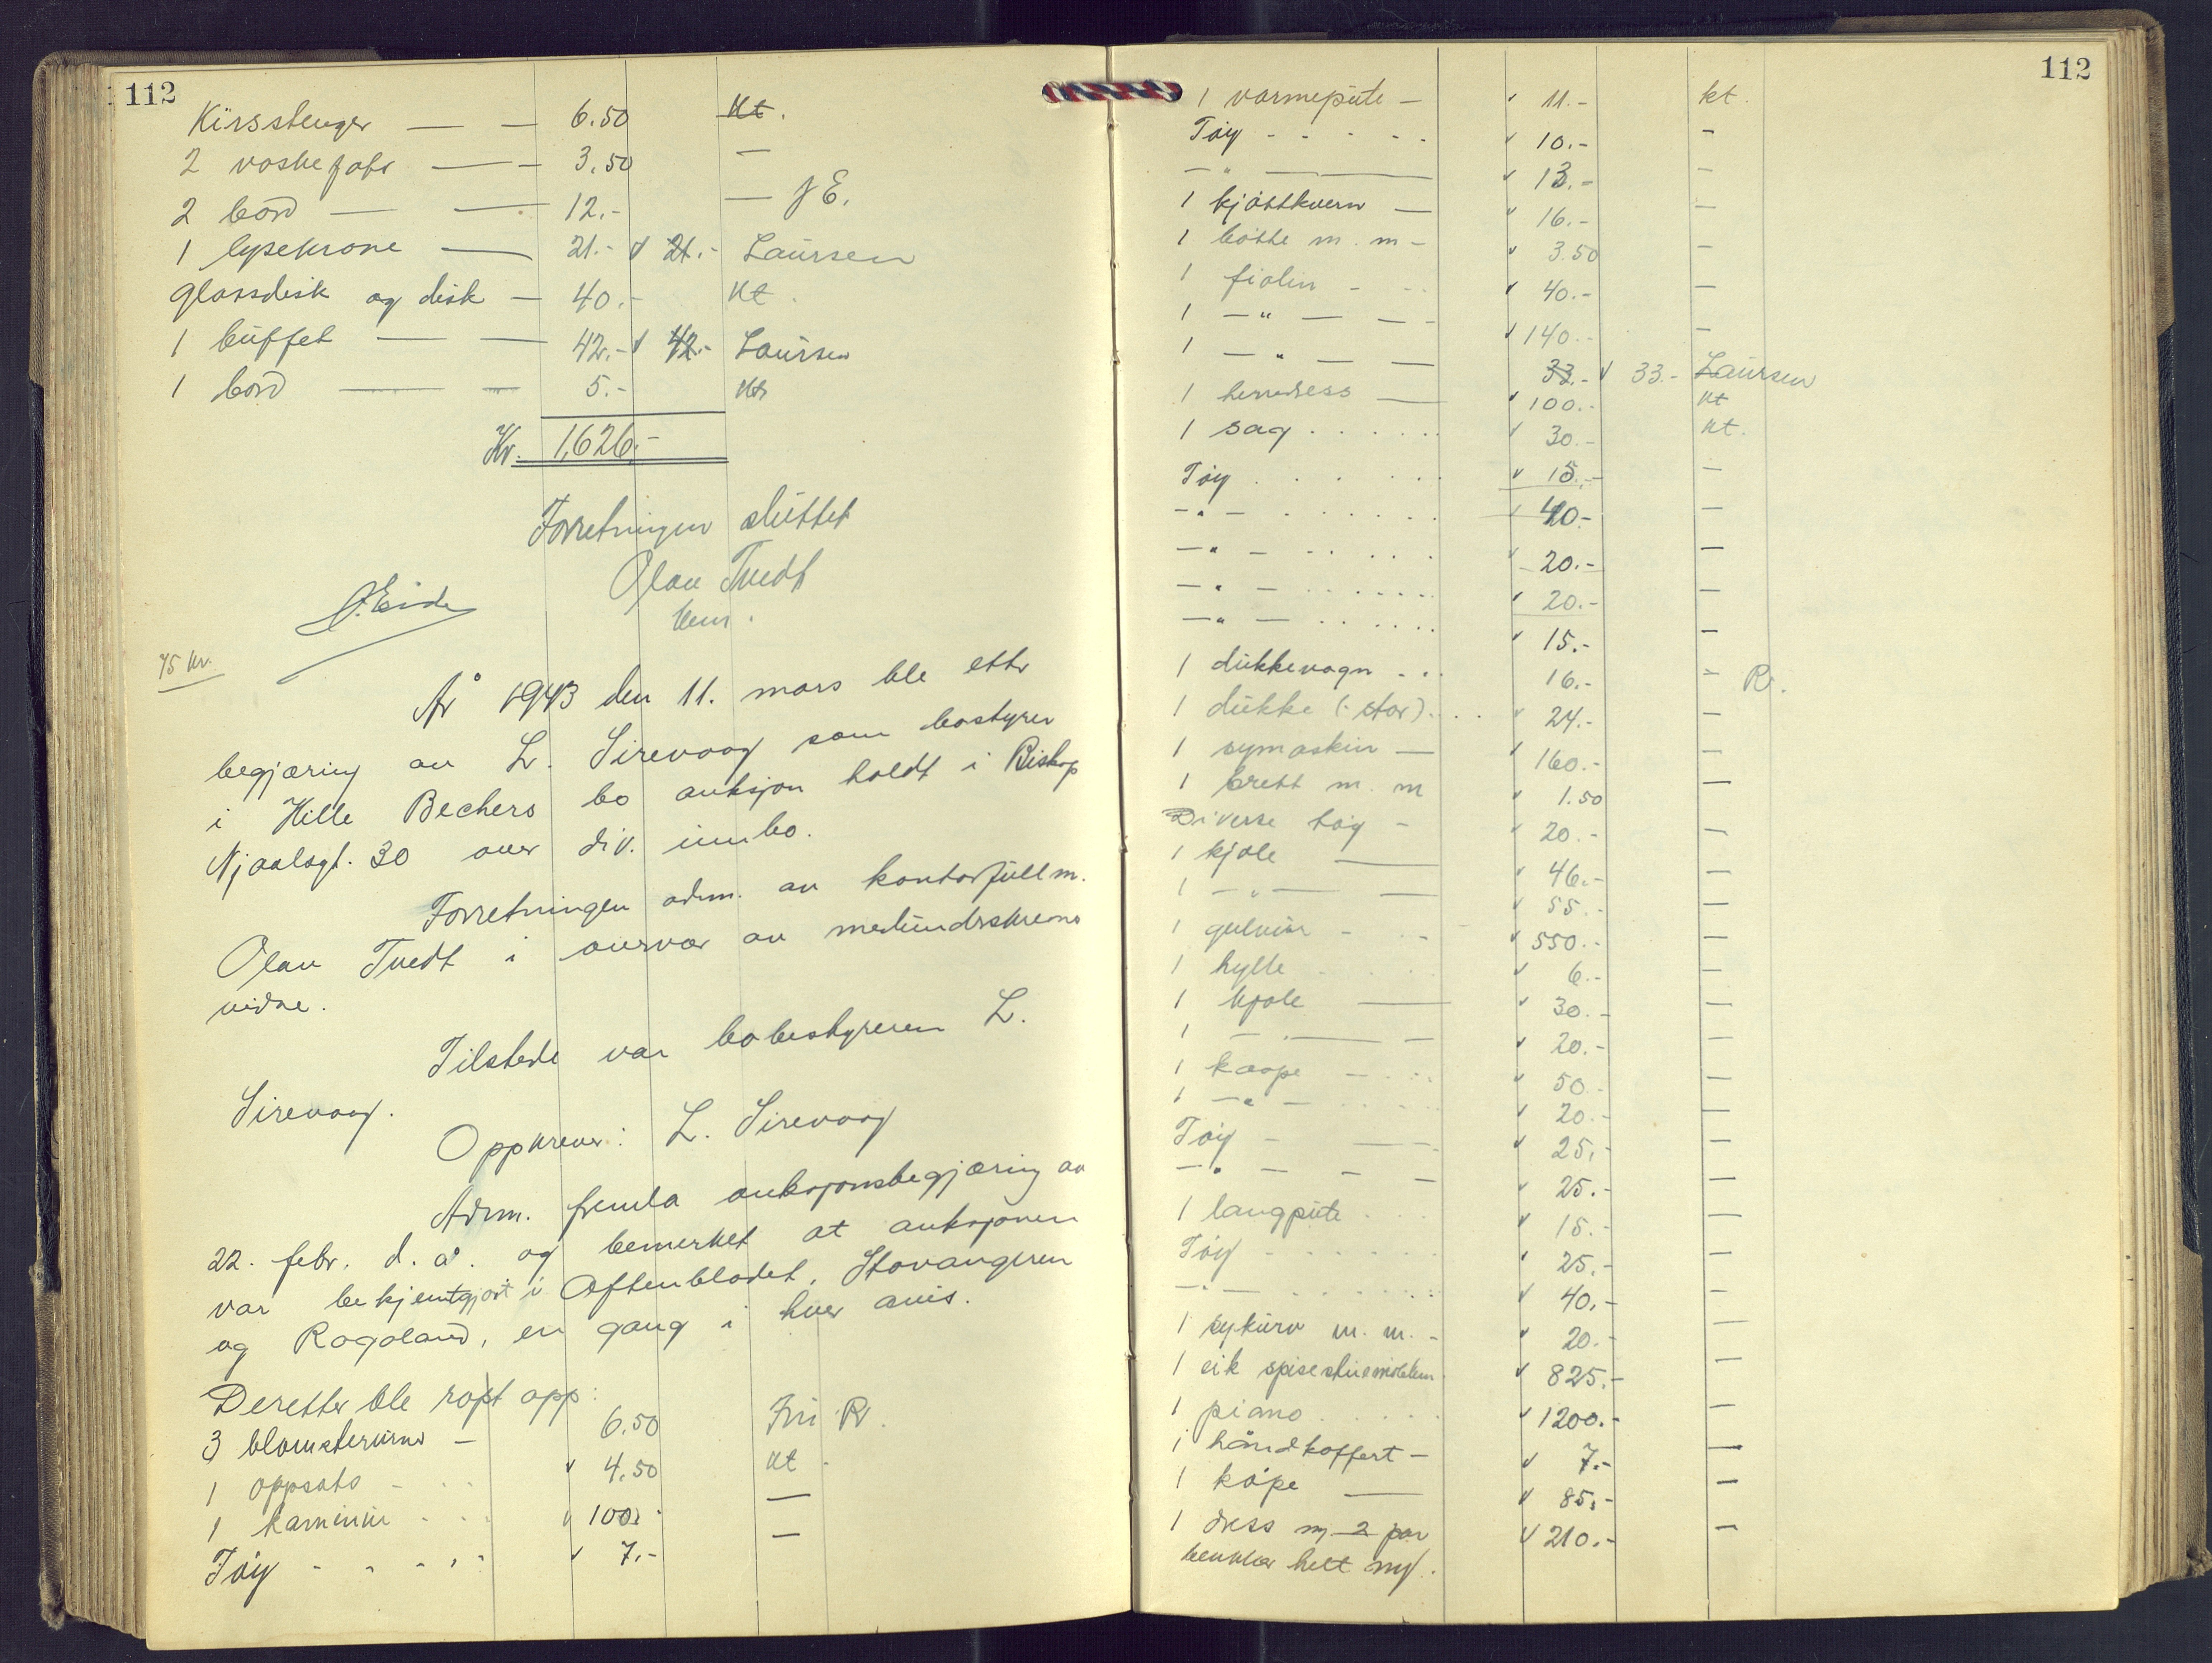 112
Kirsstenger — — 6.50 kt.
2 vaskefats — — 3.50 —
2 bord — — 12.- — J E.
1 lysekrone — 21.- 21.- Laursen
Glassdisk og disk — 40.- kt.
1 buffet — — 42.- 42.- Laursen
1 bord — — 5.- kt
Kr. 1,626.-
Forretningen sluttet
Olav Tvedt
J. Eide
45 kr.
År 1943 den 11. mars ble etter
begjæring av L. Sirevaag som bostyrer
i Hille Bechers bo auksjon holdt i Biskop
Njaalsgt. 30 over div. innbo.
Forretningen adm. av kontorfullm.
Olav Tvedt i overvær av medundrskrevne
vidne.
Tilstede var bobestyreren L.
Sirevaag.
Oppkrever: L. Sirevaag
Adm. fremla auksjonsbegjæring av
22. febr. d. å. og bemerket at auksjonen
var bekjentgjort i Aftenbladet, Stavangeren
og Rogaland, en gang i hver avis.
Deretter ble ropt opp:
3 blomsterurner — 6.50 Fru R.
1 oppsats - 4.50 kt.
1 kaminur . . . 100.- —
Tøy - - - - 7.- —
112
1 varmepute — 11.- kt.
Tøy - - - - - 10.- -
-"- — 13.- -
1 kjøttkvern — 16.- -
1 bøtte m. m - 3.50 -
1 fiolin - - - 40.- -
1 -"- — — 140.- -
1 -"- — — 33.- 33.- Laursen
1 herredress — 100.- kt
1 sag . . . . . . 30.- kt.
Tøy . . . . . . 15.- -
-"- . . . . . . 40.- -
-"- . . . . . 20.- -
-"- . . . . . . 20.- -
-"- . . . . . . 15.- -
1 dukkevogn . . . 16.- - R.
1 dukke (: stor) . . . 24.- -
1 symaskin — 160.- -
1 brett m. m 1.50 -
Diverse tøy - 20.- -
1 kjole — 46.- -
1 -"- — 55.- -
1 gulvur - - - 550.- -
1 hylle . . . 6.- -
1 kjole — 30.- -
1 -"- — 20.- -
1 kaape — . . . 50.- -
1 -"- . . . . 20.- -
Tøy - — 25.- -
-"- - — 25.- -
1 langpute . . . 15.- -
Tøy - . . . . . 25.- -
-"- . . . . . . 40.- -
1 sykurv m. m. - 20.- -
1 eik spisestuemøblem. 825.- -
1 piano . . . . . 1200.- -
1 håndkoffert — 7.- -
1 kåpe — 85.- -
1 dress m 2 par 210.- -
benklær helt ny.